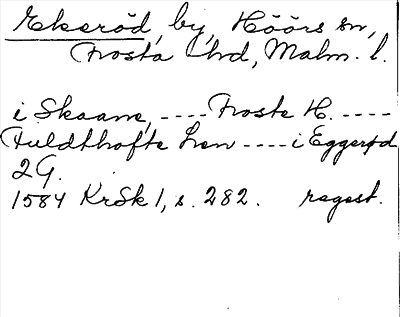 Ekeröd, by, Höörs sn,
Frosta hd, Malm. l.
i Skaane, ---- Froste H. ----
Fuldthofte Len ---- i Eggerød
2 G.
1584 KrSk 1, s. 282. regest.